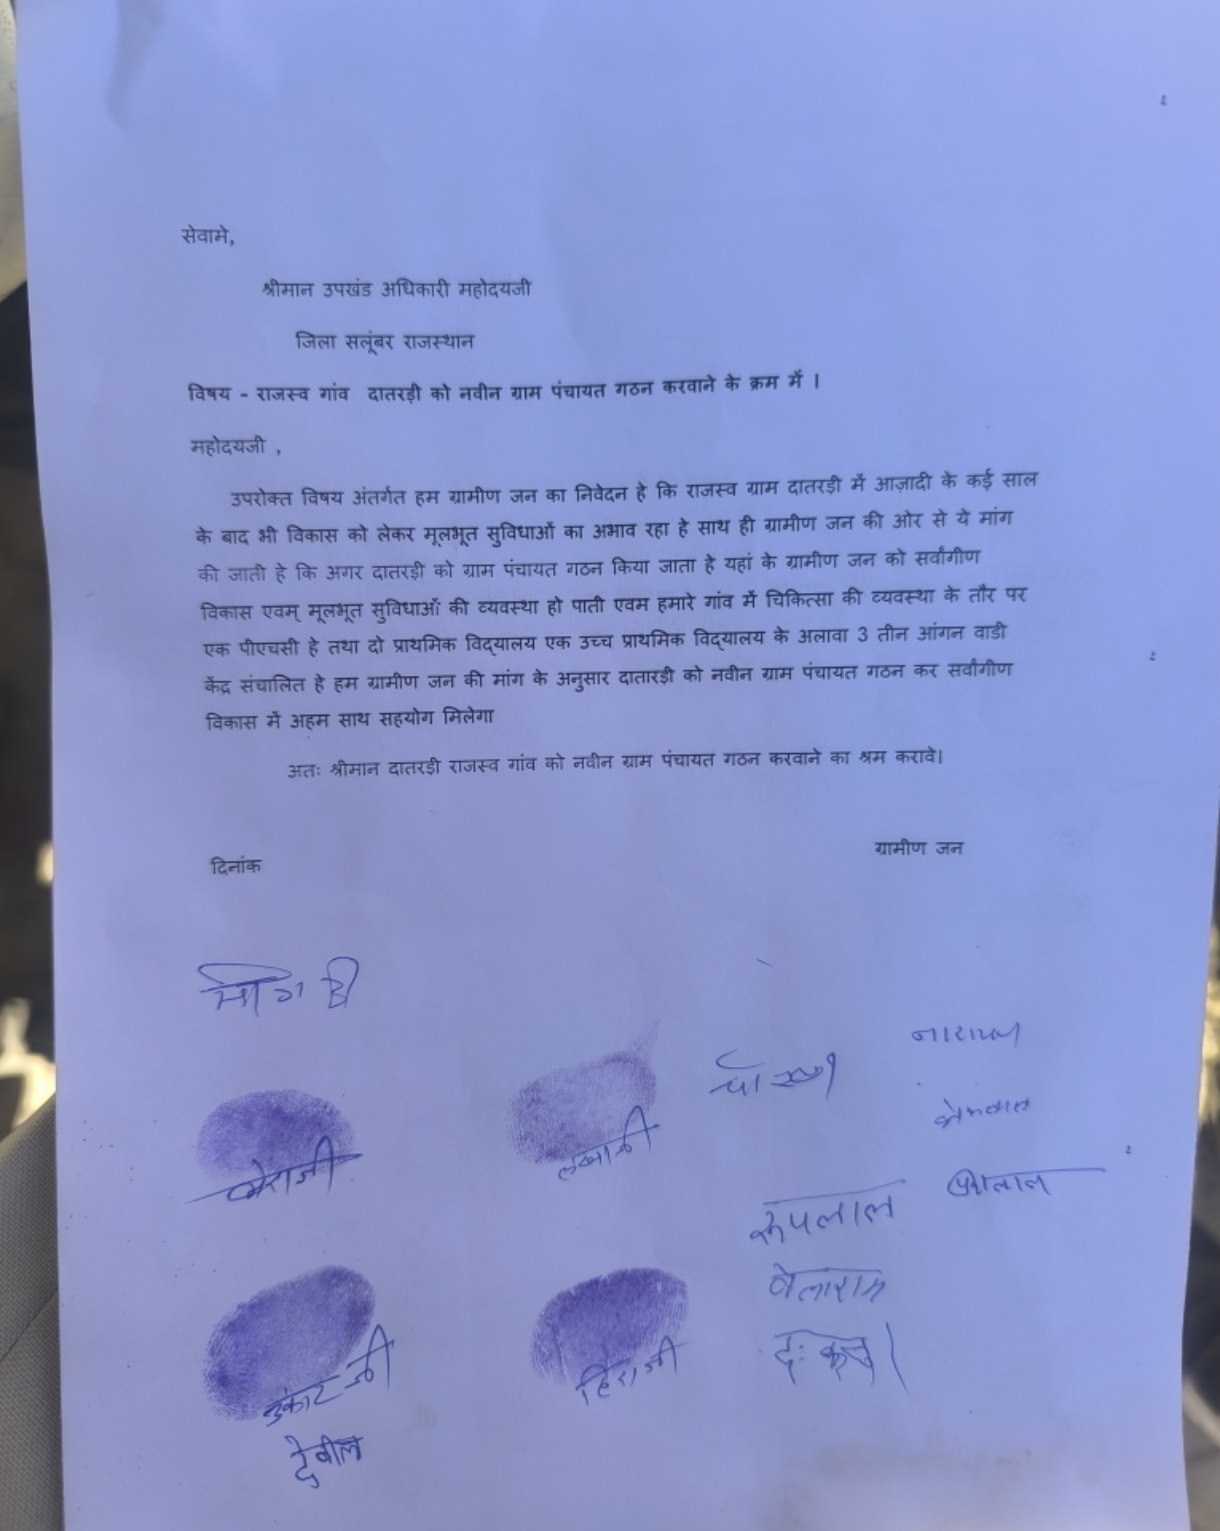 सेवामे,
श्रीमान उपखंड अधिकारी महोदयजी
जिला सलूंबर राजस्थान
विषय - राजस्व गांव दातरड़ी को नवीन ग्राम पंचायत गठन करवाने के क्रम में ।
महोदयजी ,
उपरोक्त विषय अंतर्गत हम ग्रामीण जन का निवेदन हे कि राजस्व ग्राम दातरड़ी में आज़ादी के कई साल
के बाद भी विकास को लेकर मूलभूत सुविधाओं का अभाव रहा हे साथ ही ग्रामीण जन की ओर से ये मांग
की जाती हे कि अगर दातरड़ी को ग्राम पंचायत गठन किया जाता हे यहां के ग्रामीण जन को सर्वांगीण
विकास एवम् मूलभूत सुविधाओं की व्यवस्था हो पाती एवम हमारे गांव में चिकित्सा की व्यवस्था के तौर पर
एक पीएचसी हे तथा दो प्राथमिक विद्यालय एक उच्च प्राथमिक विद्यालय के अलावा 3 तीन आंगन वाडी
केंद्र संचालित हे हम ग्रामीण जन की मांग के अनुसार दातारड़ी को नवीन ग्राम पंचायत गठन कर सर्वांगीण
विकास में अहम साथ सहयोग मिलेगा
अतः श्रीमान दातरड़ी राजस्व गांव को नवीन ग्राम पंचायत गठन करवाने का श्रम करावे।
ग्रामीण जन
दिनांक
नारायण
रूपलाल
वेलाराम
हिराजी